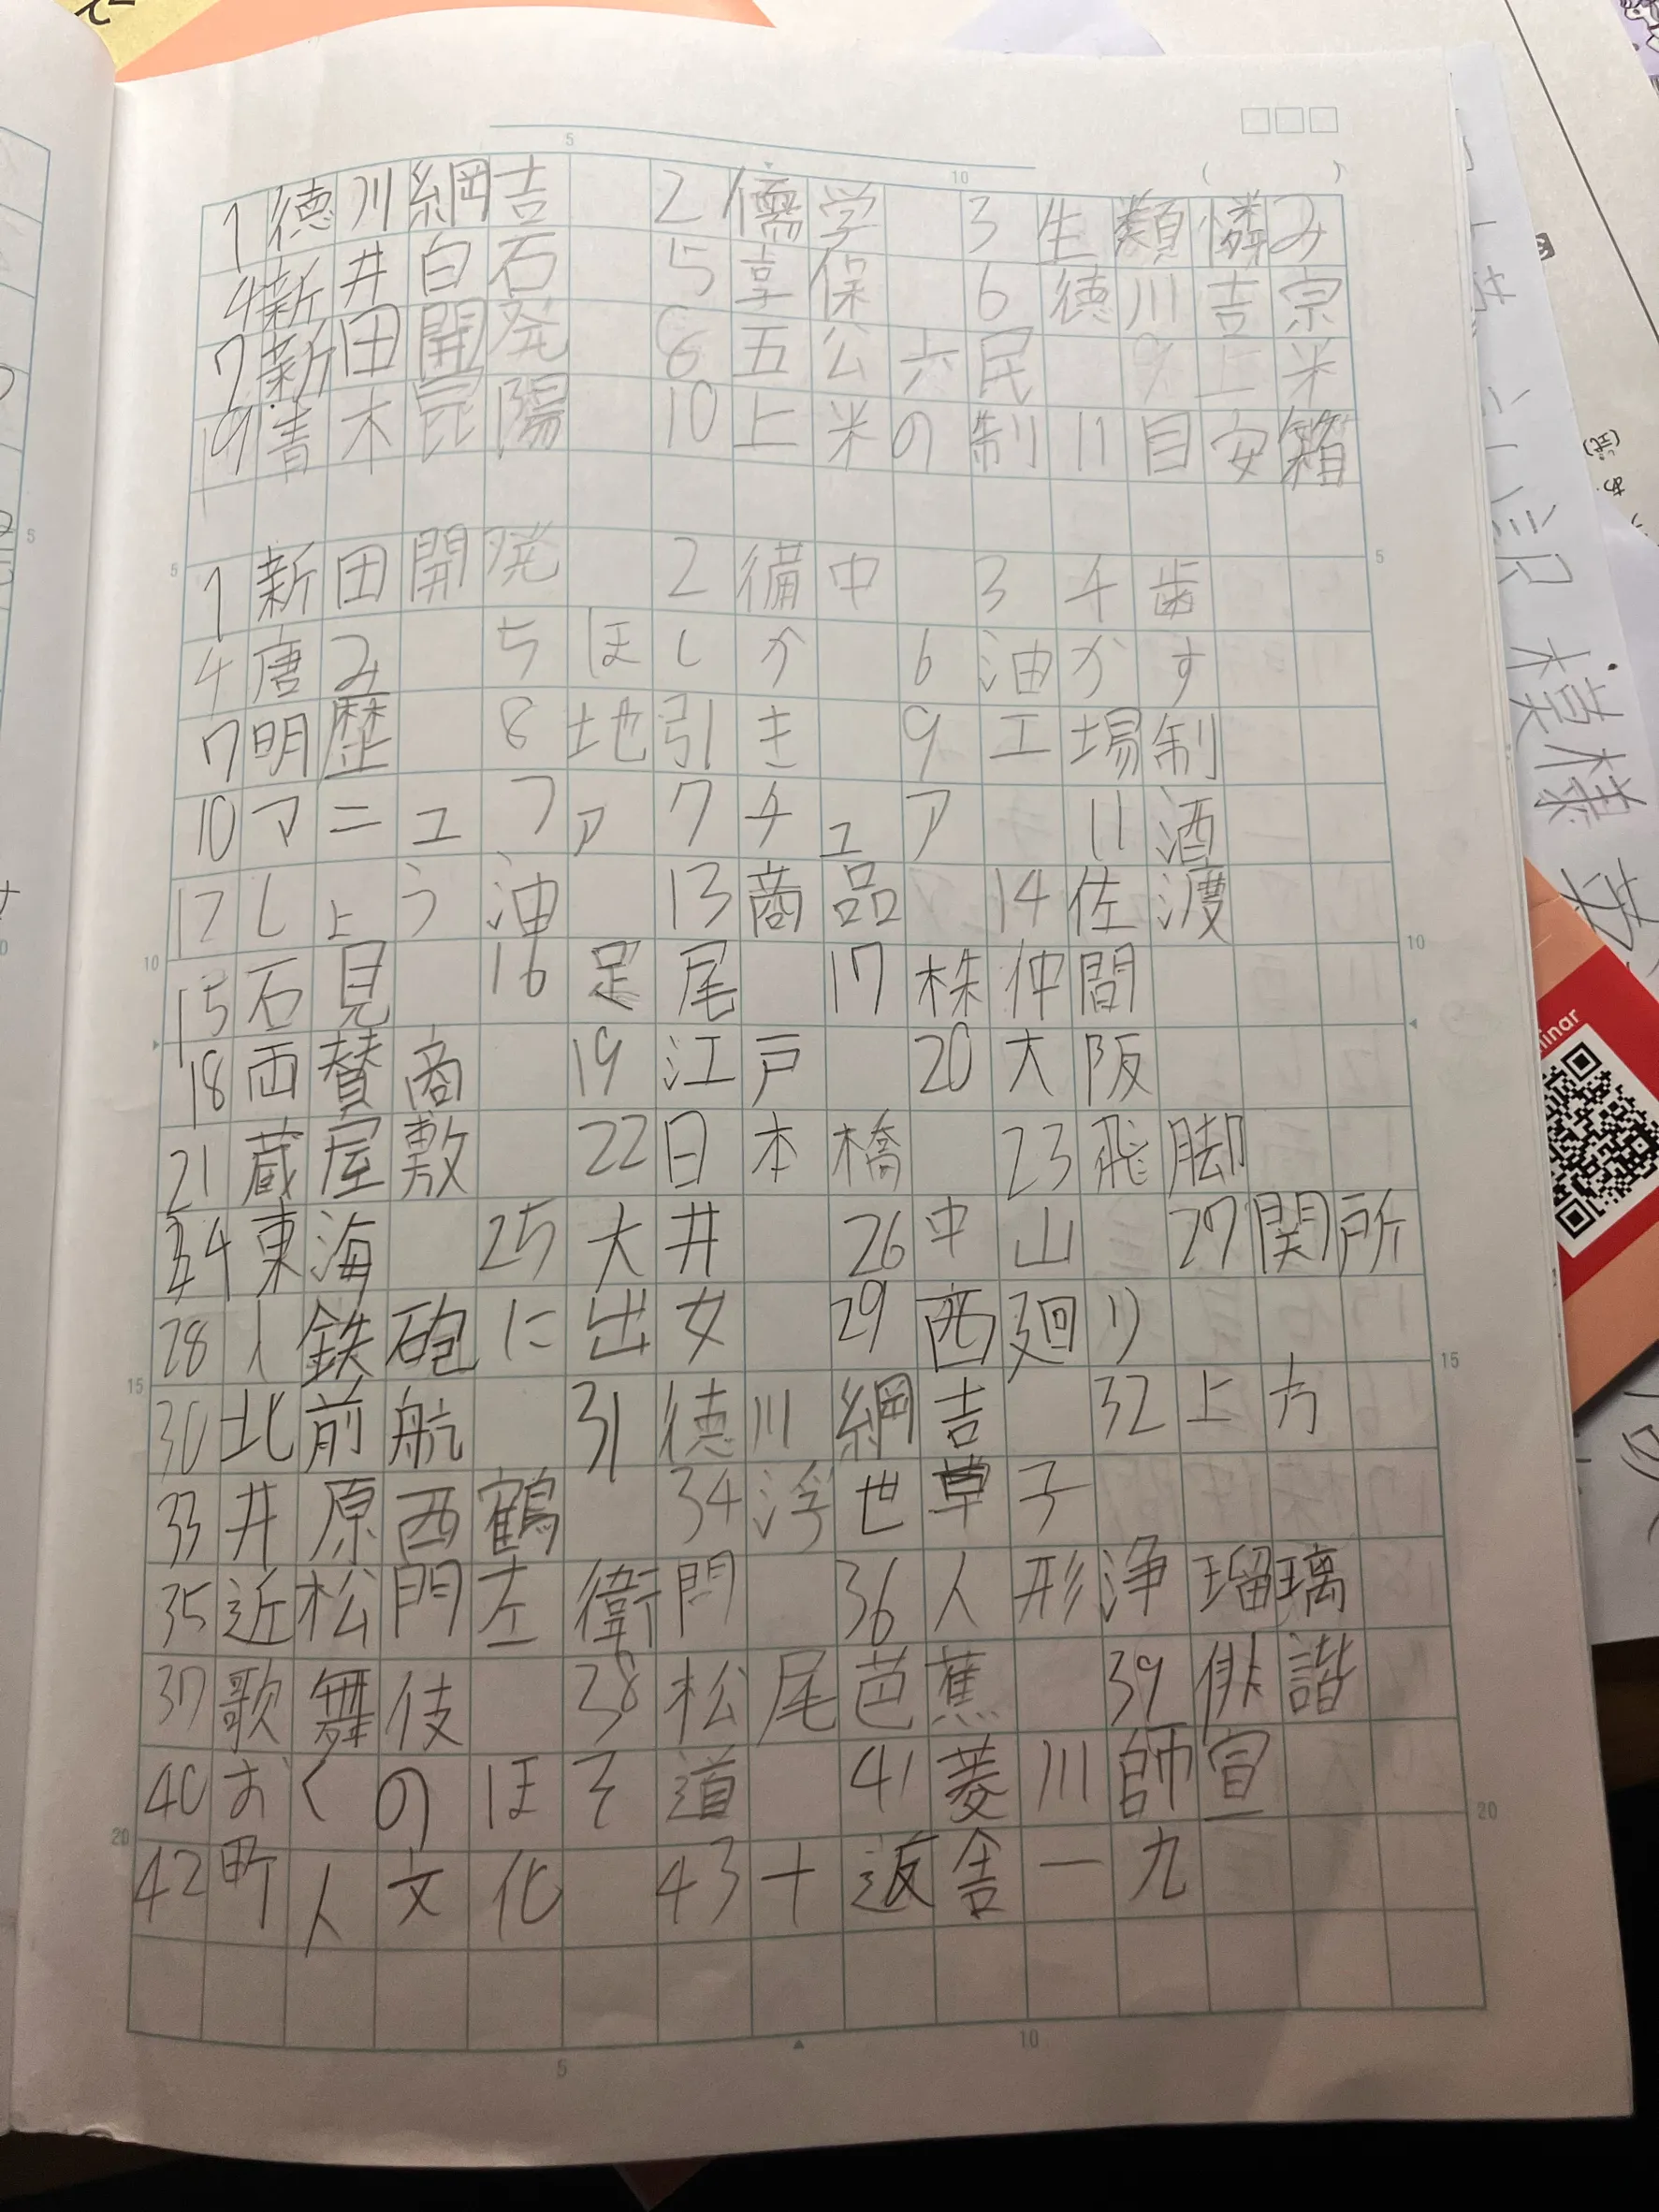 1徳川綱吉 2儒学 3生類憐み
4新井白石 5享保 6徳川吉宗
7新田開発 8五公六民 9上米
9青木昆陽 10上米の制11目安箱
1新田開発 2備中 3千歯
4唐み 5ほしか 6油かす
7明歴 8地引き 9工場制
10マニュファクチュア 11酒
12しょう油 13商品 14佐渡
15石見 16足尾 17株仲間
18両賛商 19江戸 20大阪
21蔵屋敷 22日本橋 23飛脚
24東海 25大井 26中山 27関所
28入鉄砲に出女 29西廻り
30北前航 31徳川綱吉 32上方
33井原西鶴 34浮世草子
35近松門左衛門 36人形浄瑠璃
37歌舞伎 38松尾芭蕉 39俳諧
40おくのほそ道 41菱川師宣
42町人文化 43十返舎一九
5
10
5
10
15
20
5
10
15
20
5
10
minar